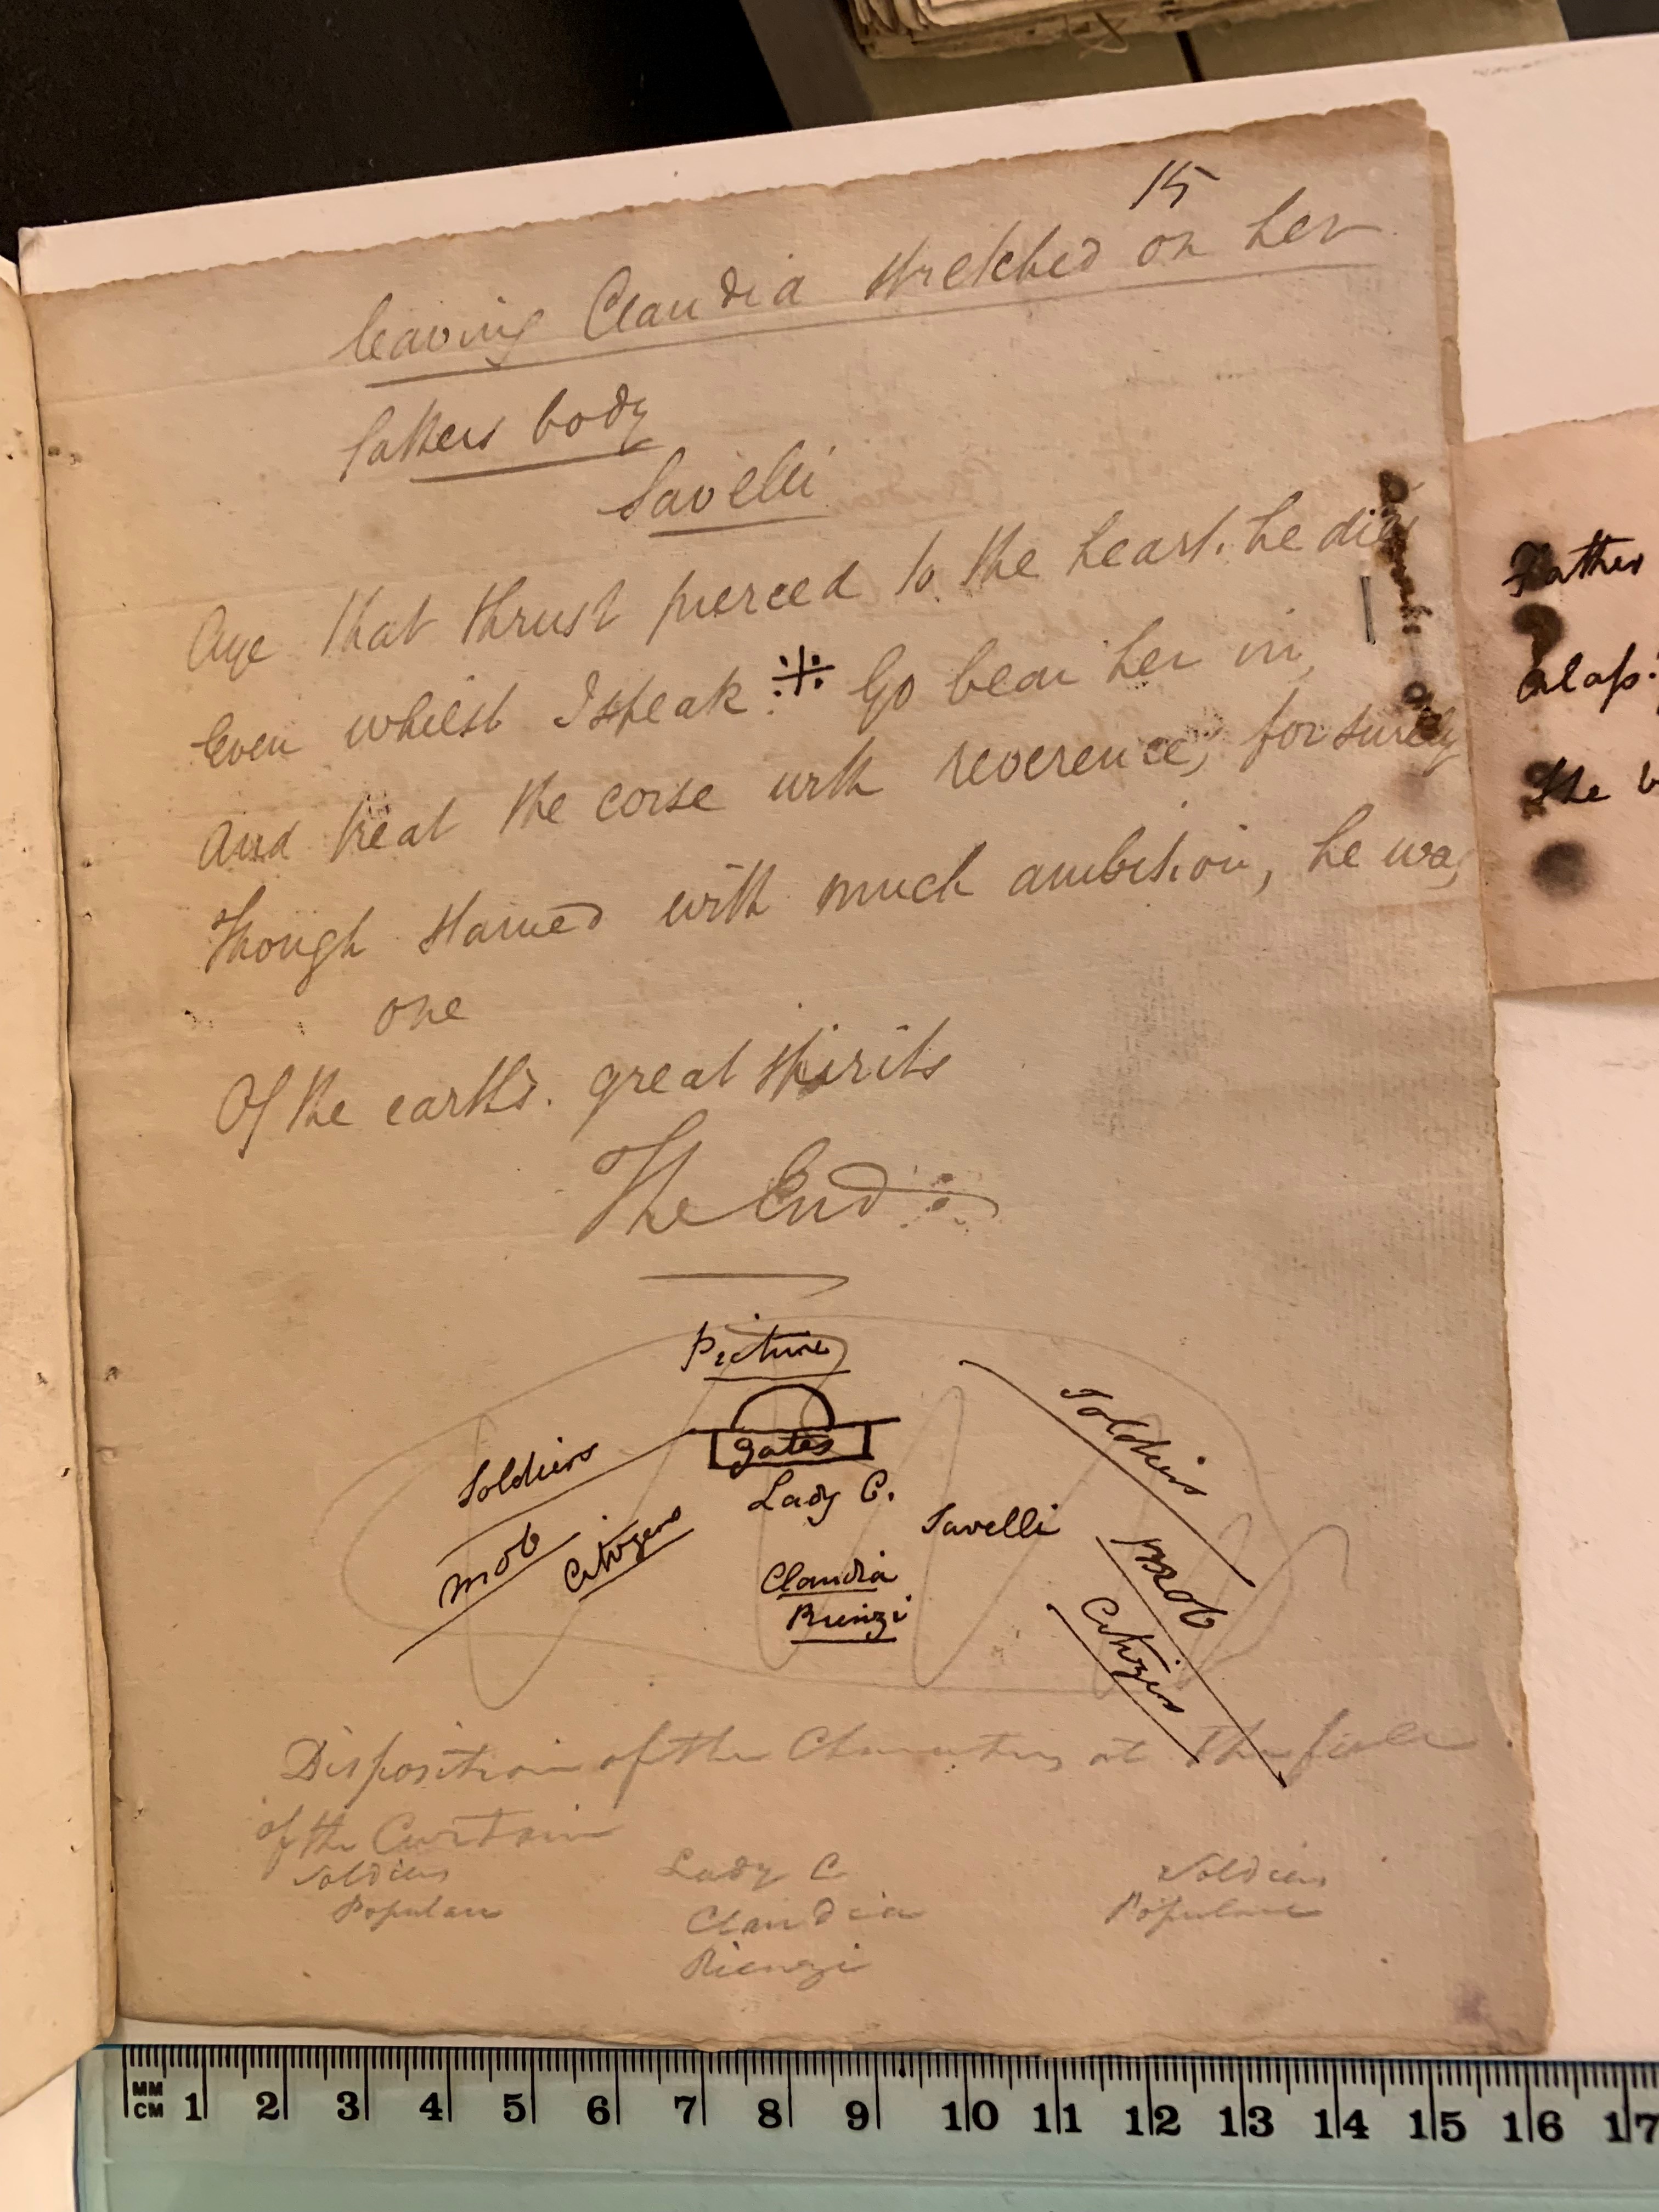 15
leaving Claudia stretched on her
fathers body
Savelli
Aye that thrust pierced to the heart. he dies
Even whilst I speak ※ Go bear her in,
And treat the corse with reverence, for surely
Though stained with much ambition, he was
one
Of the earth's. great spirits
The End
Picture
gates
Soldiers
Soldiers
Lady C.
Savelli
mob
Citizens
mob
Citizens
Claudia
Rienzi
Disposition of the Characters at the fall
of the Curtain
Soldiers Lady C Soldiers
Populace Claudia Populace
Rienzi
Father
Alass!
The
MM
CM 1 2 3 4 5 6 7 8 9 10 11 12 13 14 15 16 17